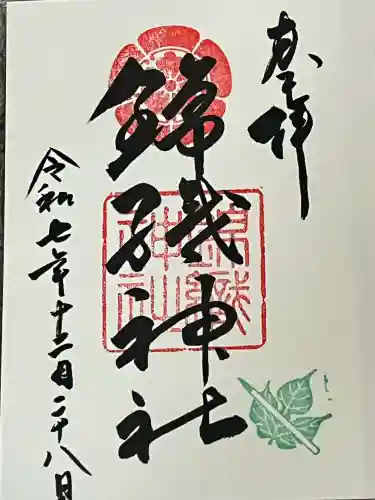 奉拝
錦織神社
錦織神社
令和七年十二月二十八日